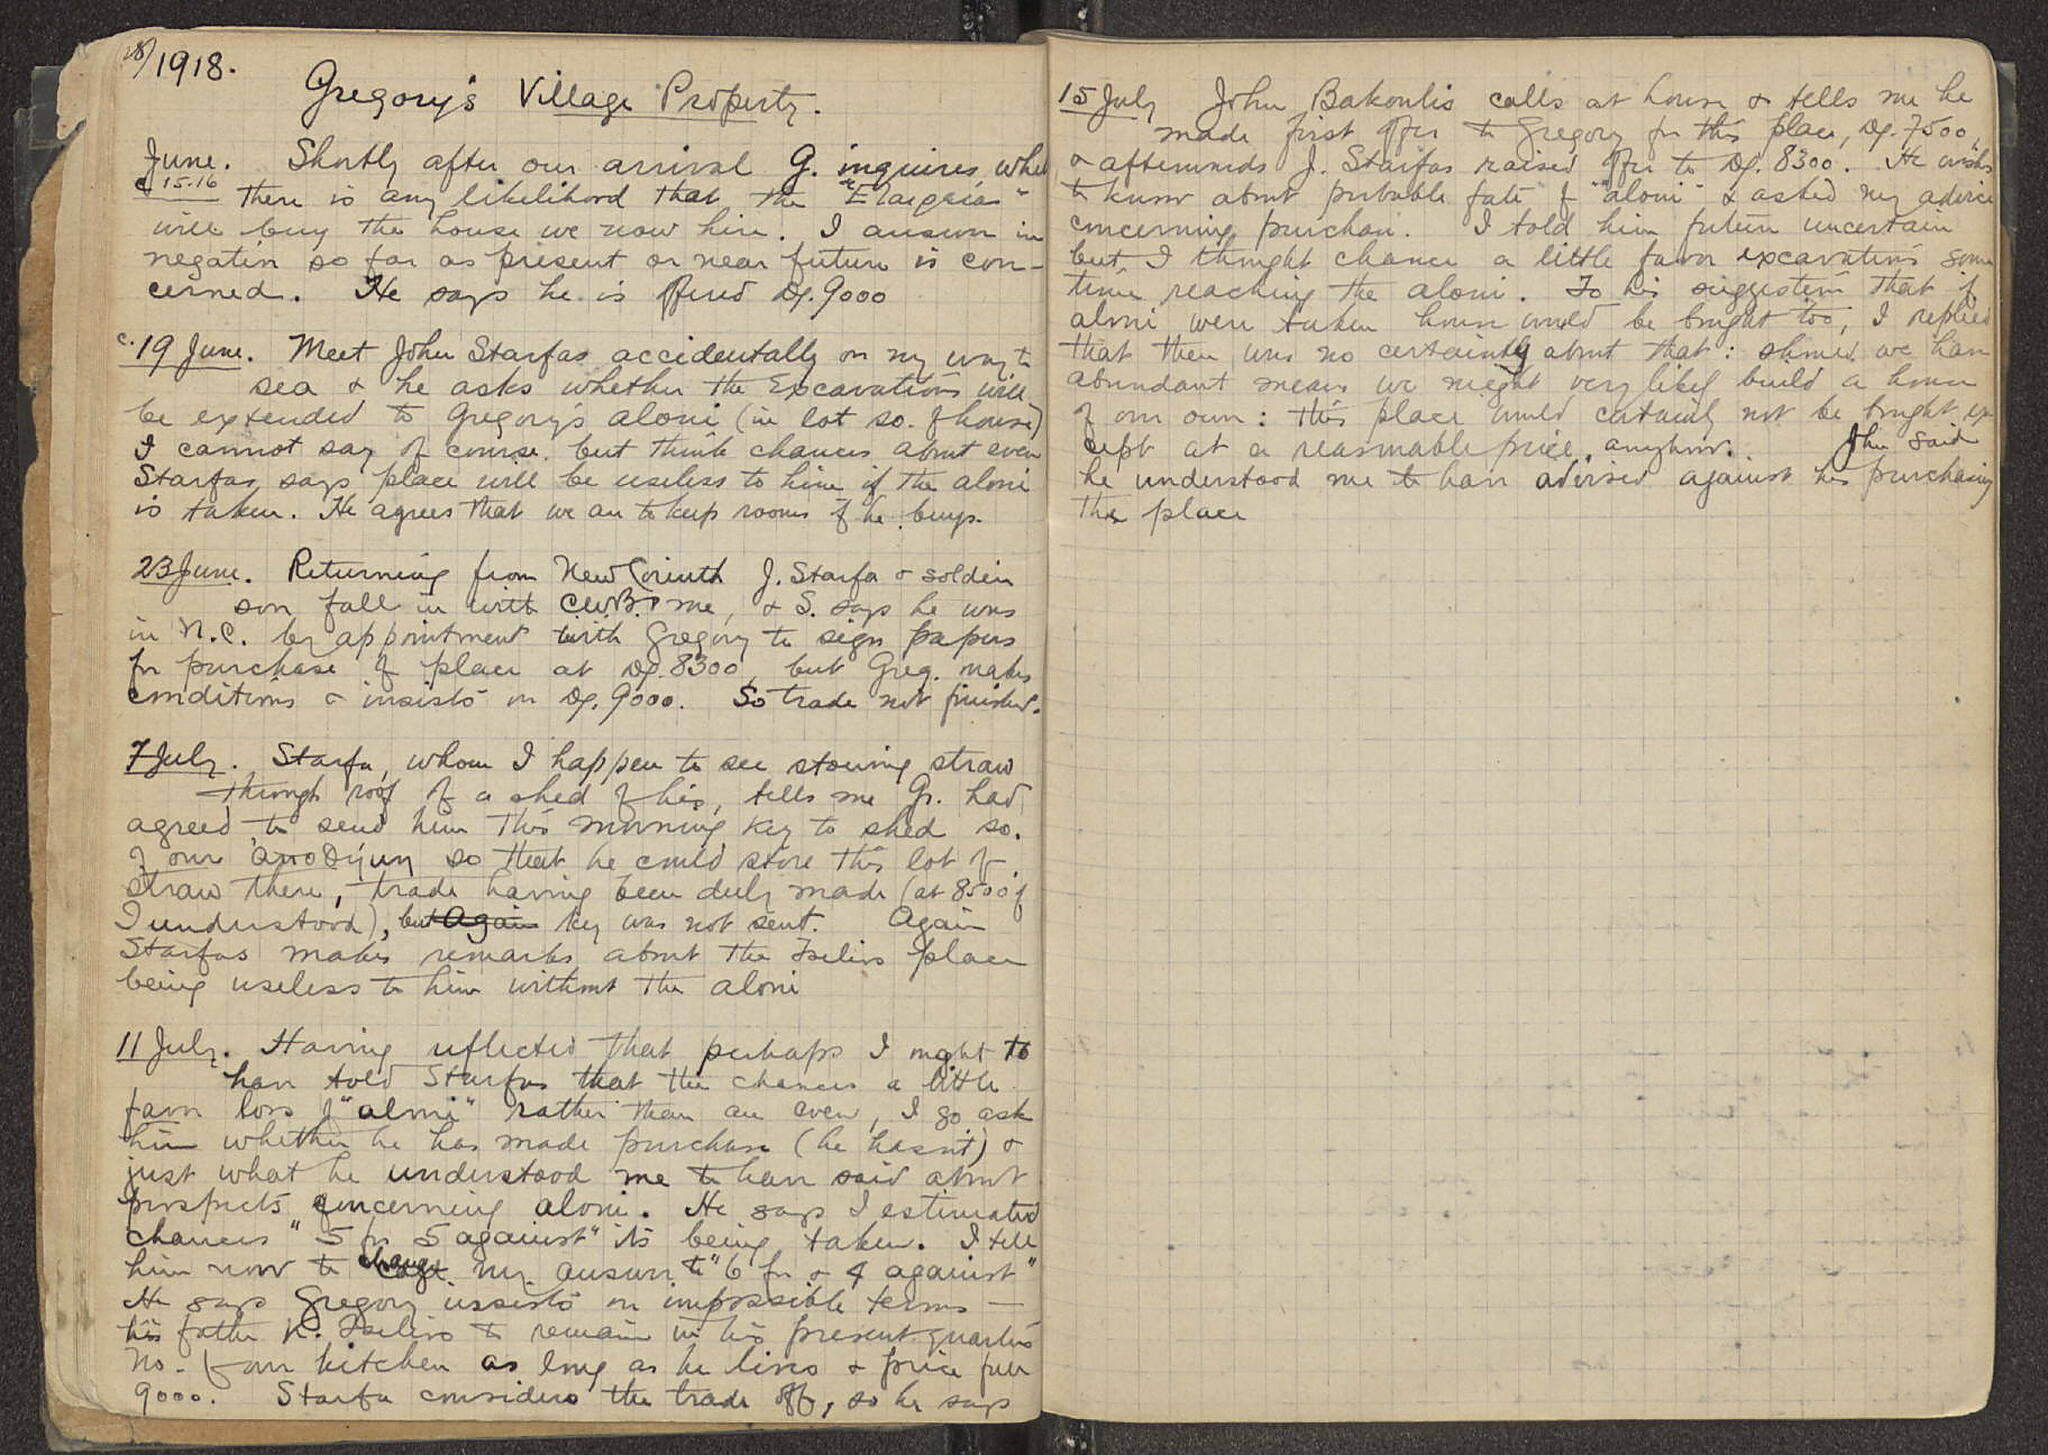 1918.
Gregory's Village Property.
June. Shortly after our arrival G. inquires whe
c 15-16 there is any likelihood that the "Ἑταιρεία"
will buy the house we now hire. I answer in
negative so far as present or near future is con-
cerned. He says he is offered Dr. 9000
c. 19 June. Meet John Starfas accidentally on my way to
sea & he asks whether the Excavations will
be extended to Gregory's aloni (in lot so. of house)
I cannot say of course, but think chances about even
Starfas says place will be useless to him if the aloni
is taken. He agrees that we are to keep rooms if he buys.
23 June. Returning from New Corinth J. Starfa & soldier
son fall in with CWB & me, & S. says he was
in N.C. by appointment with Gregory to sign papers
for purchase of place at Dr. 8300, but Greg. makes
conditions & insists on Dr. 9000. So trade not finished.
7 July. Starfa, whom I happen to see storing straw
through roof of a shed of his, tells me Gr. had
agreed to send him this morning key to shed so.
of our ἀποθήκη so that he could store this lot of
straw there, trade having been duly made (at 8500 if
I understood), but Again key was not sent. Again
Starfas makes remarks about the Tselios place
being useless to him without the aloni
11 July. Having reflected that perhaps I ought to
have told Starfas that the chances a little
favor loss of "aloni" rather than are even, I go ask
him whether he has made purchase (he hasn't) &
just what he understood me to have said about
prospects concerning aloni. He says I estimated
chances "5 for 5 against" its being taken. I tell
him now to change my answer to "6 for & 4 against"
He says Gregory insists on impossible terms —
his father K. Tselios to remain in his present quarters
No. of our kitchen as long as he lives & price full
9000. Starfa considers the trade off, so he says
15 July John Bakoulis calls at house & tells me he
made first offer to Gregory for this place, Dr. 7500,
& afterwards J. Starfas raised offer to Dr. 8300. He wishes
to know about probable fate of "aloni" & asked my advice
concerning purchase. I told him future uncertain
but I thought chance a little favor excavations some
time reaching the aloni. To his suggestion that if
aloni were taken house would be bought too, I replied
that there was no certainty about that: should we have
abundant means we might very likely build a house
of our own: this place would certainly not be bought ex-
cept at a reasonable price, anyhow. John said
he understood me to have advised against his purchasing
the place